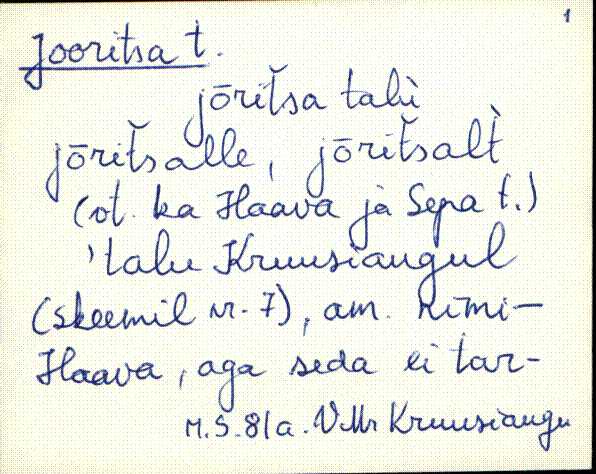 1
Jooritsa t.
jōrit̆sa talù
jōrit̆salle, jōrit̆sal̀t
(vt. ka Haava ja Sepa t.)
'talu Kruusiaugul
(skeemil nr. 7), am. nimi-
Haava, aga seda ei tar-
M.S. 81a. VMr Kruusiaugu